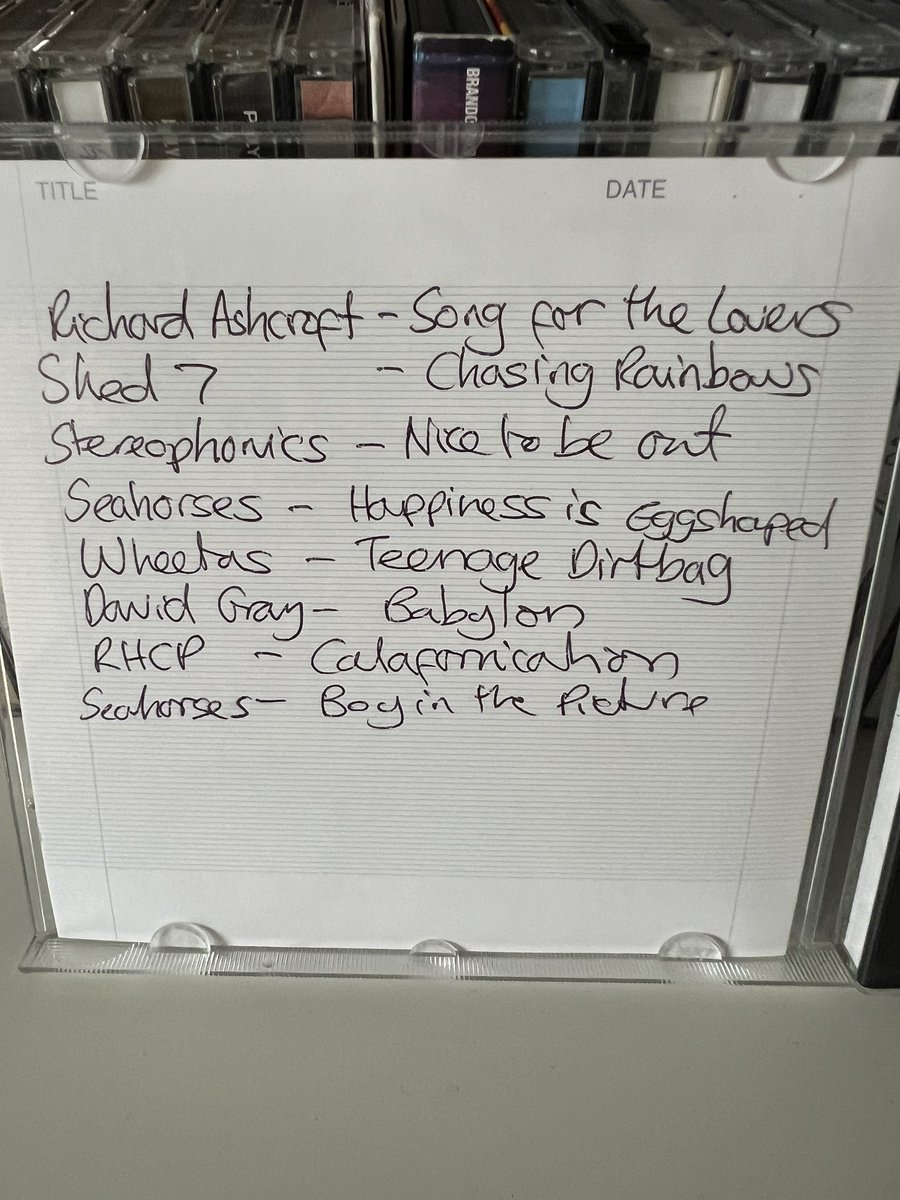 BRANDO
TITLE DATE
Richard Ashcroft - Song for the Lovers
Shed 7 - Chasing Rainbows
Stereophonics - Nice to be out
Seahorses - Happiness is Eggshaped
Wheetas - Teenage Dirtbag
David Gray - Babylon
RHCP - Calafornication
Seahorses - Boy in the Picture